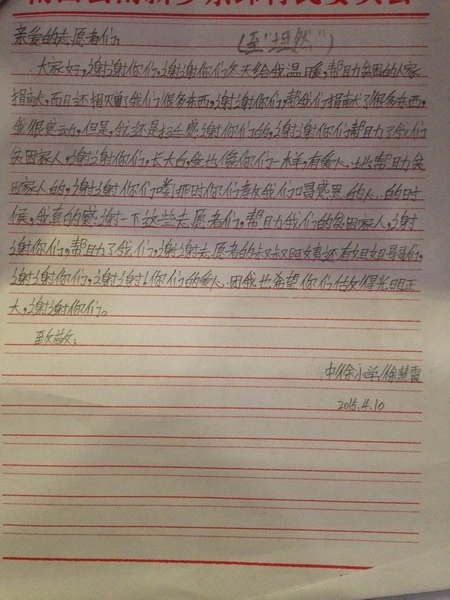 亲爱的志愿者们，
(至"坦然")
大家好，谢谢你们，谢谢你们冬天给我温暖，帮助贫困的人家
捐献，而且还捐赠我们很多东西，谢谢你们帮我们捐献了很多东西，
我很感动，但是，我还是挺感谢你们的，谢谢你们帮助了我们
贫困家人，谢谢你们，长大后，我也像你们一样，有爱人，也帮助贫
困家人的，谢谢你们，那时你们教我们感恩的人的时
候，我真的感谢一下这些志愿者们，帮助我们的贫困家人，谢
谢你们，帮助了我们，谢谢志愿者的叔叔阿姨还有姐姐哥哥们，
谢谢你们，谢谢你们的爱人，因我也希望你们做得光明正
大，谢谢你们。
致敬：
中徐小学：徐慧
2015.4.10